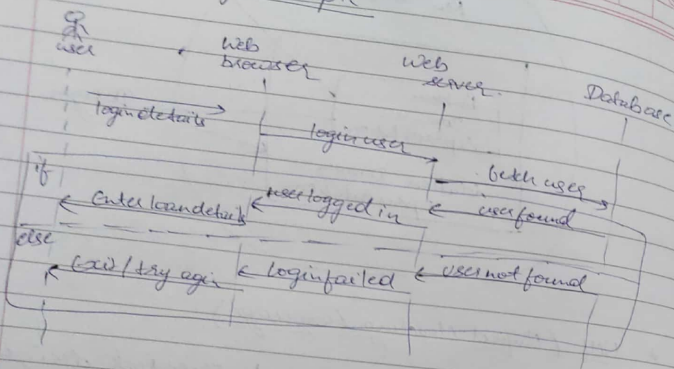 user
Web
browser
Web
server
Database
login details
login user
fetch user
if
enter loan details
user logged in
user found
else
login failed
user not found